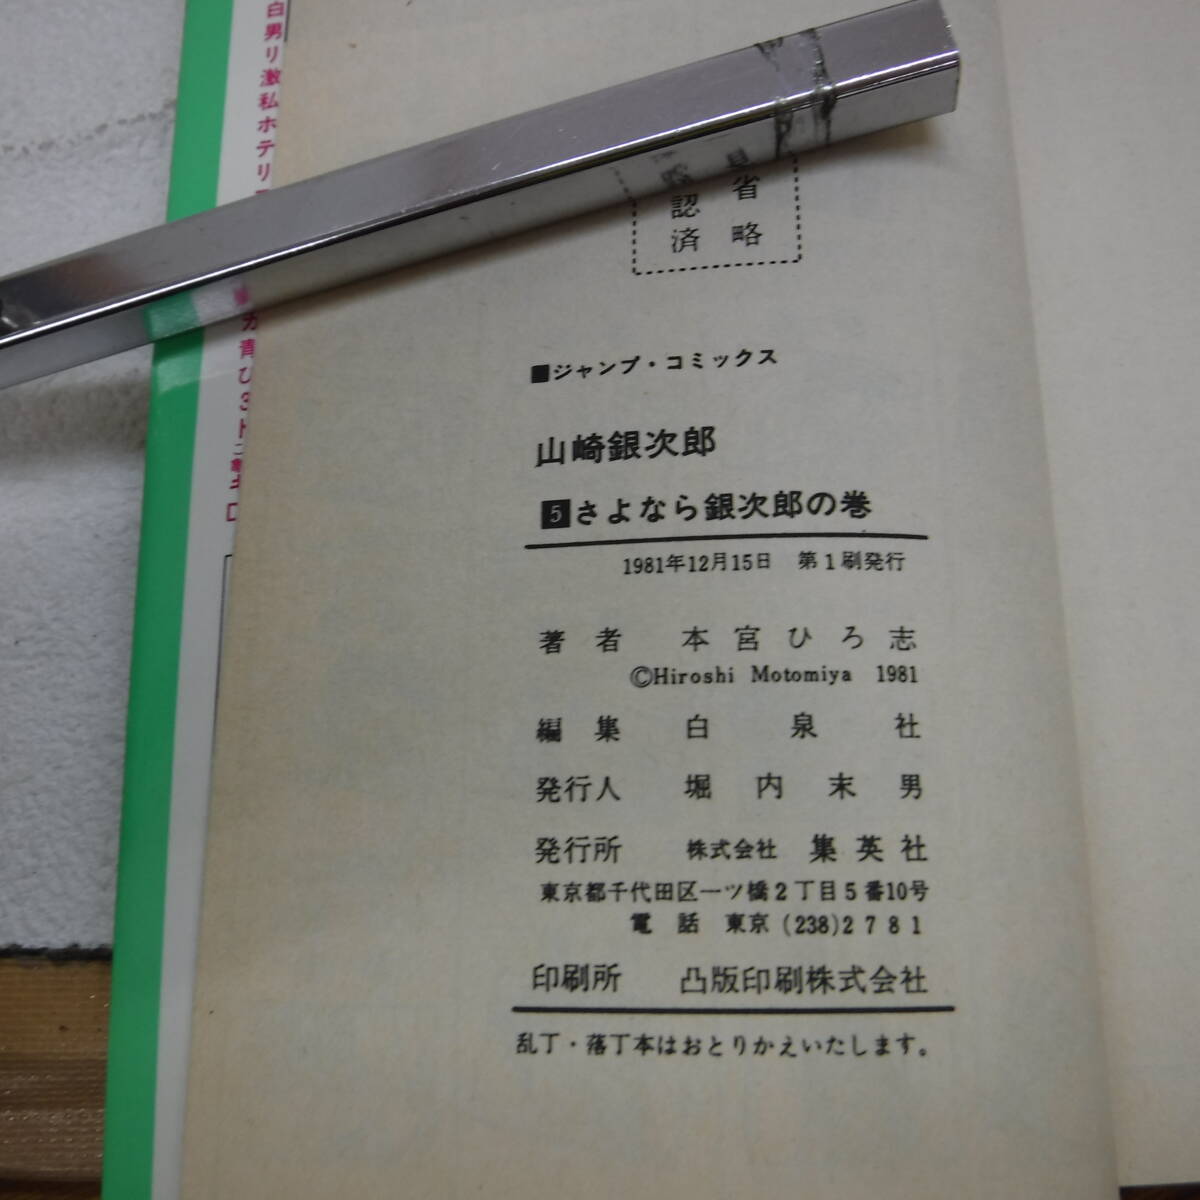 白男リ激私ホテリ
カ青ひ3ト
省略
認済
■ジャンプ・コミックス
山崎銀次郎
5さよなら銀次郎の巻
1981年12月15日 第1刷発行
著者 本宮ひろ志
©Hiroshi Motomiya 1981
編集 白泉社
発行人 堀内末男
発行所 株式会社 集英社
東京都千代田区一ツ橋2丁目5番10号
電話 東京(238)2781
印刷所 凸版印刷株式会社
乱丁・落丁本はおとりかえいたします。